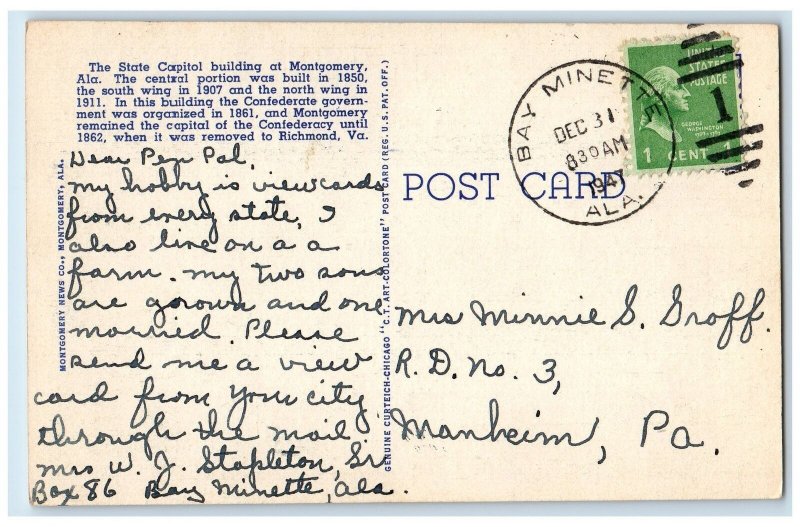 The State Capitol building at Montgomery,
Ala. The central portion was built in 1850,
the south wing in 1907 and the north wing in
1911. In this building the Confederate govern-
ment was organized in 1861, and Montgomery
remained the capital of the Confederacy until
1862, when it was removed to Richmond, Va.
Dear Pen Pal,
my hobby is viewcards
from every state, I
also live on a a
farm. my two sons
are gorown and one
married. Please
send me a view
card from your city
through the mail
Mrs W. J. Stapleton, Sr
Box 86 Bay Minette, Ala.
MONTGOMERY NEWS CO., MONTGOMERY, ALA.
GENUINE CURTEICH-CHICAGO "C.T. ART-COLORTONE" POST CARD (REG. U.S. PAT. OFF.)
POST CARD
BAY MINETTE
DEC 31
830AM
1947
ALA.
UNITED
STATES
POSTAGE
1
GEORGE
WASHINGTON
1 CENT 1
Mrs Minnie S. Groff.
R.D. No. 3,
Manheim, Pa.